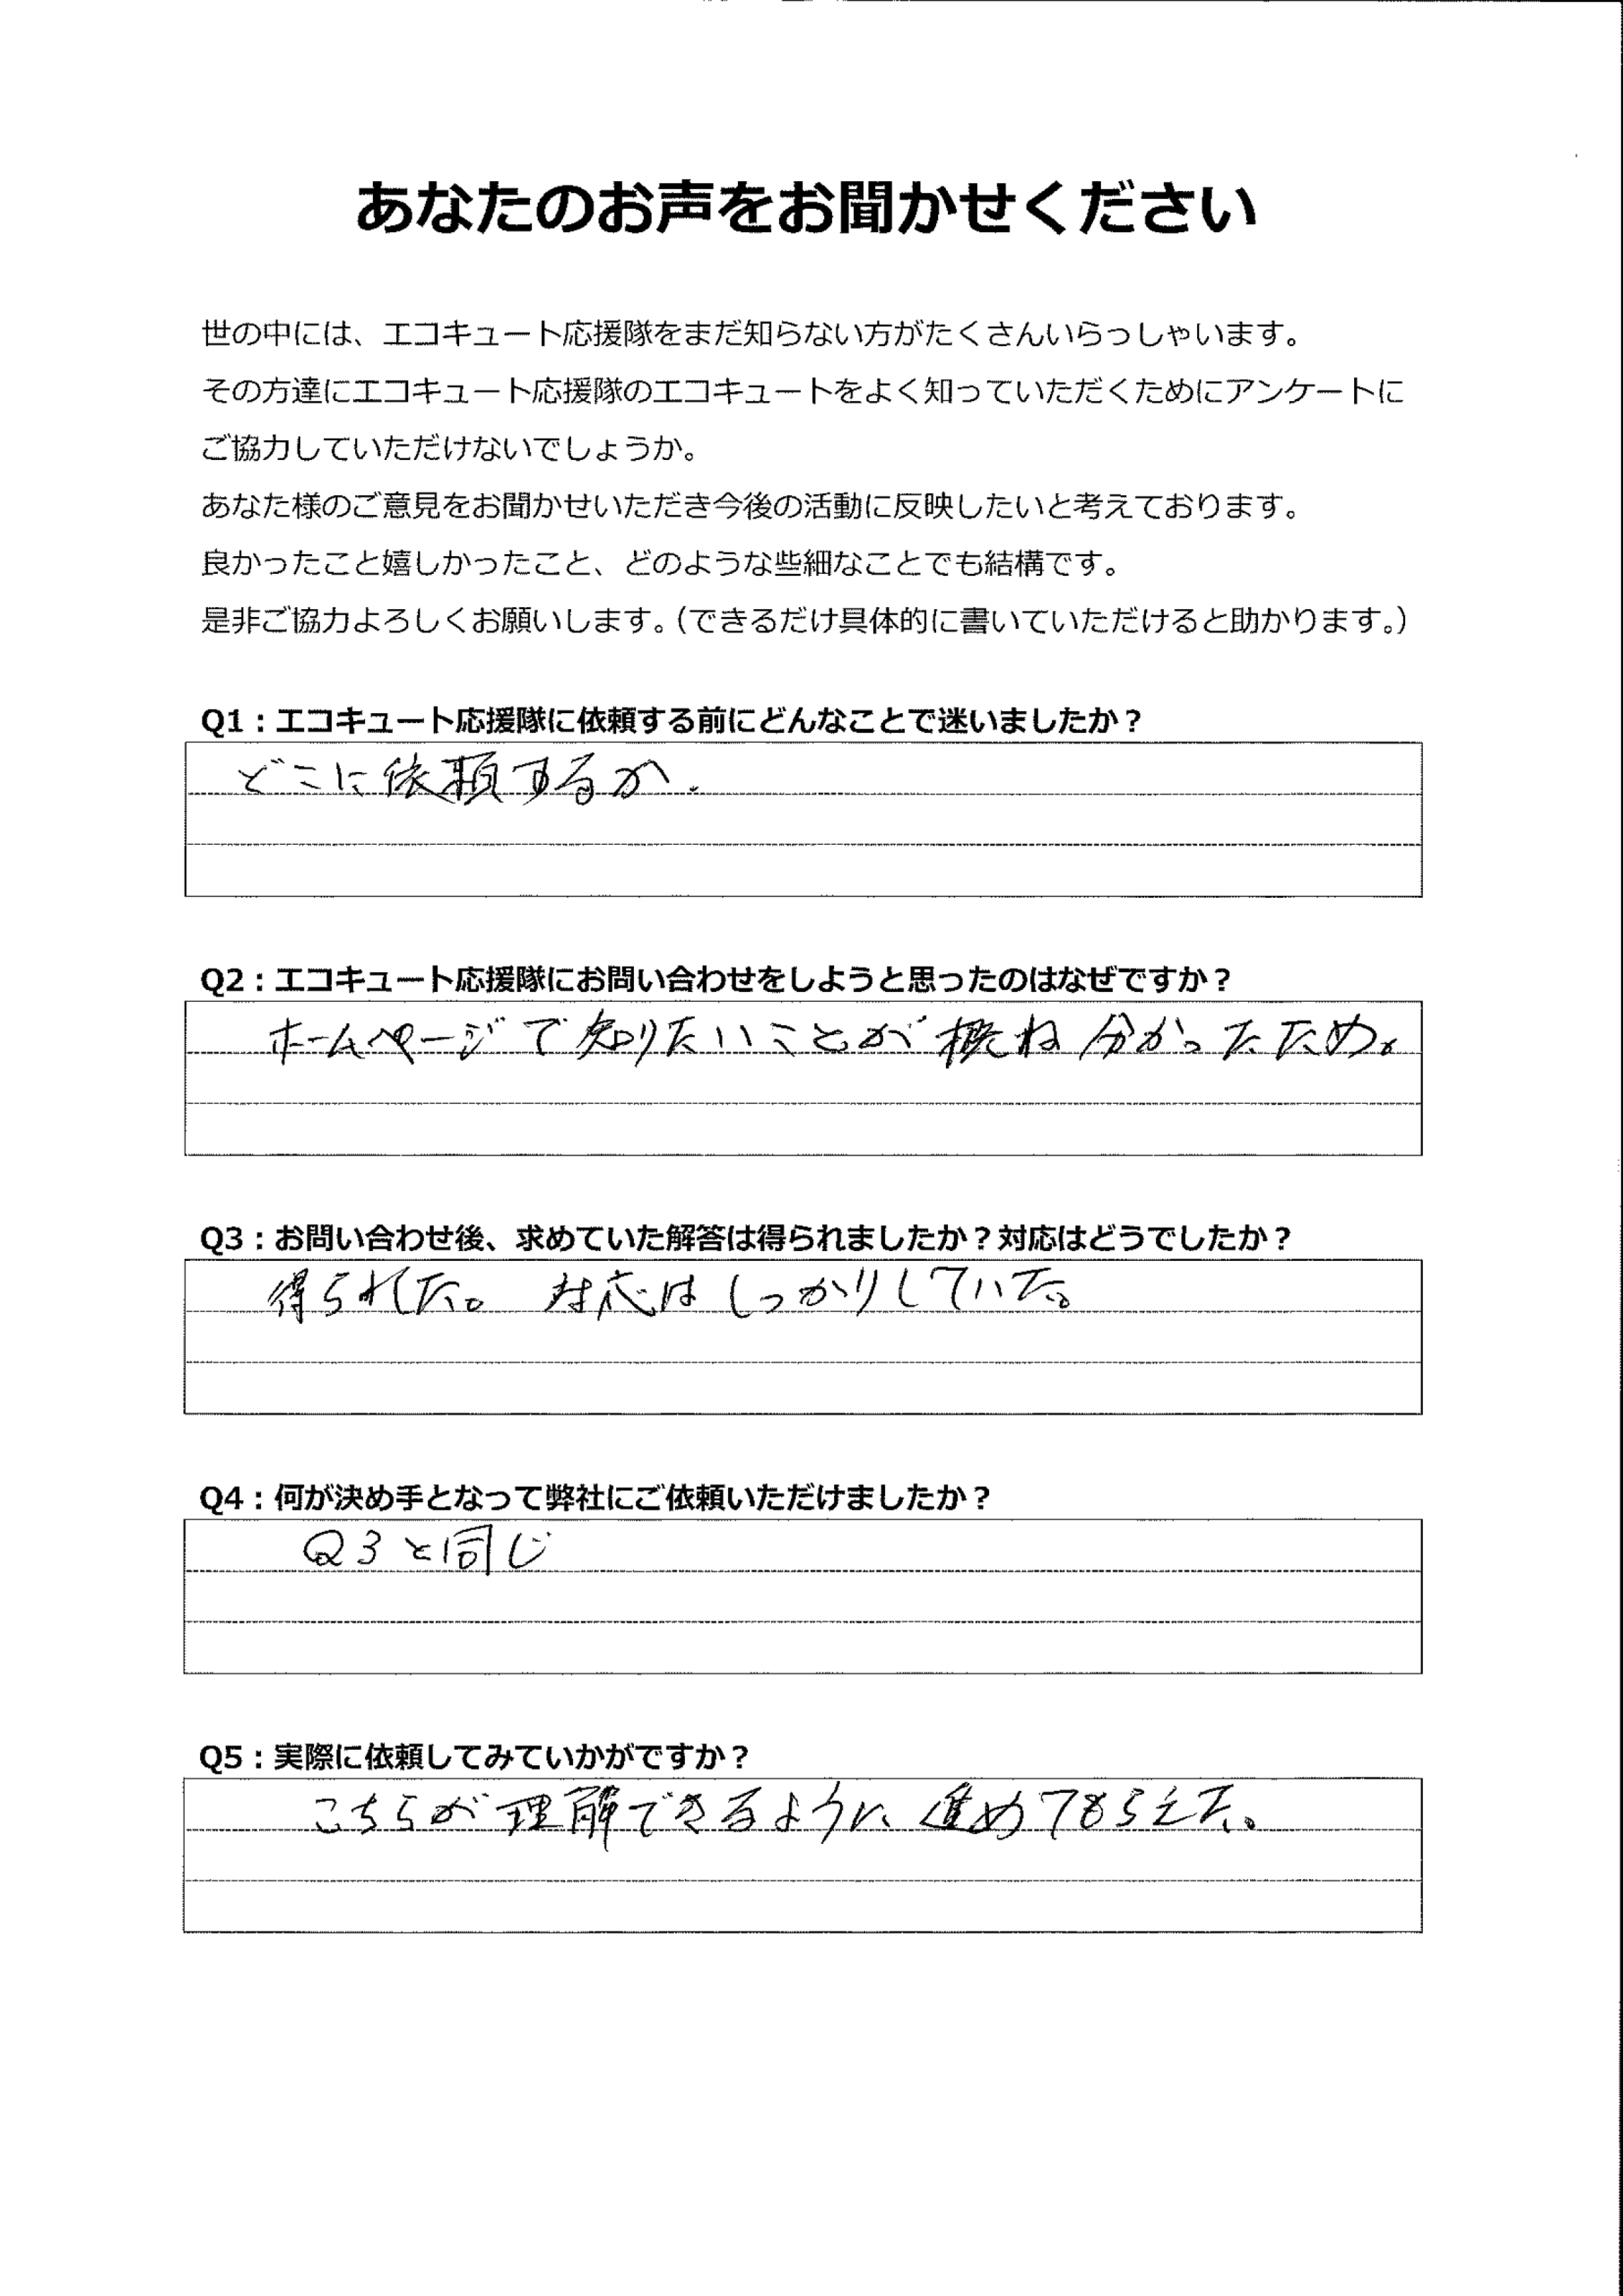 あなたのお声をお聞かせください
世の中には、エコキュート応援隊をまだ知らない方がたくさんいらっしゃいます。
その方達にエコキュート応援隊のエコキュートをよく知っていただくためにアンケートに
ご協力していただけないでしょうか。
あなた様のご意見をお聞かせいただき今後の活動に反映したいと考えております。
良かったこと嬉しかったこと、どのような些細なことでも結構です。
是非ご協力よろしくお願いします。（できるだけ具体的に書いていただけると助かります。）
Q1：エコキュート応援隊に依頼する前にどんなことで迷いましたか？
どこに依頼するか.
Q2：エコキュート応援隊にお問い合わせをしようと思ったのはなぜですか？
ホームページで知りたいことが概ね分かったため。
Q3：お問い合わせ後、求めていた解答は得られましたか？対応はどうでしたか？
得られた。 対応はしっかりしていた。
Q4：何が決め手となって弊社にご依頼いただけましたか？
Q3と同じ
Q5：実際に依頼してみていかがですか？
こちらが理解できるように進めてもらえた。